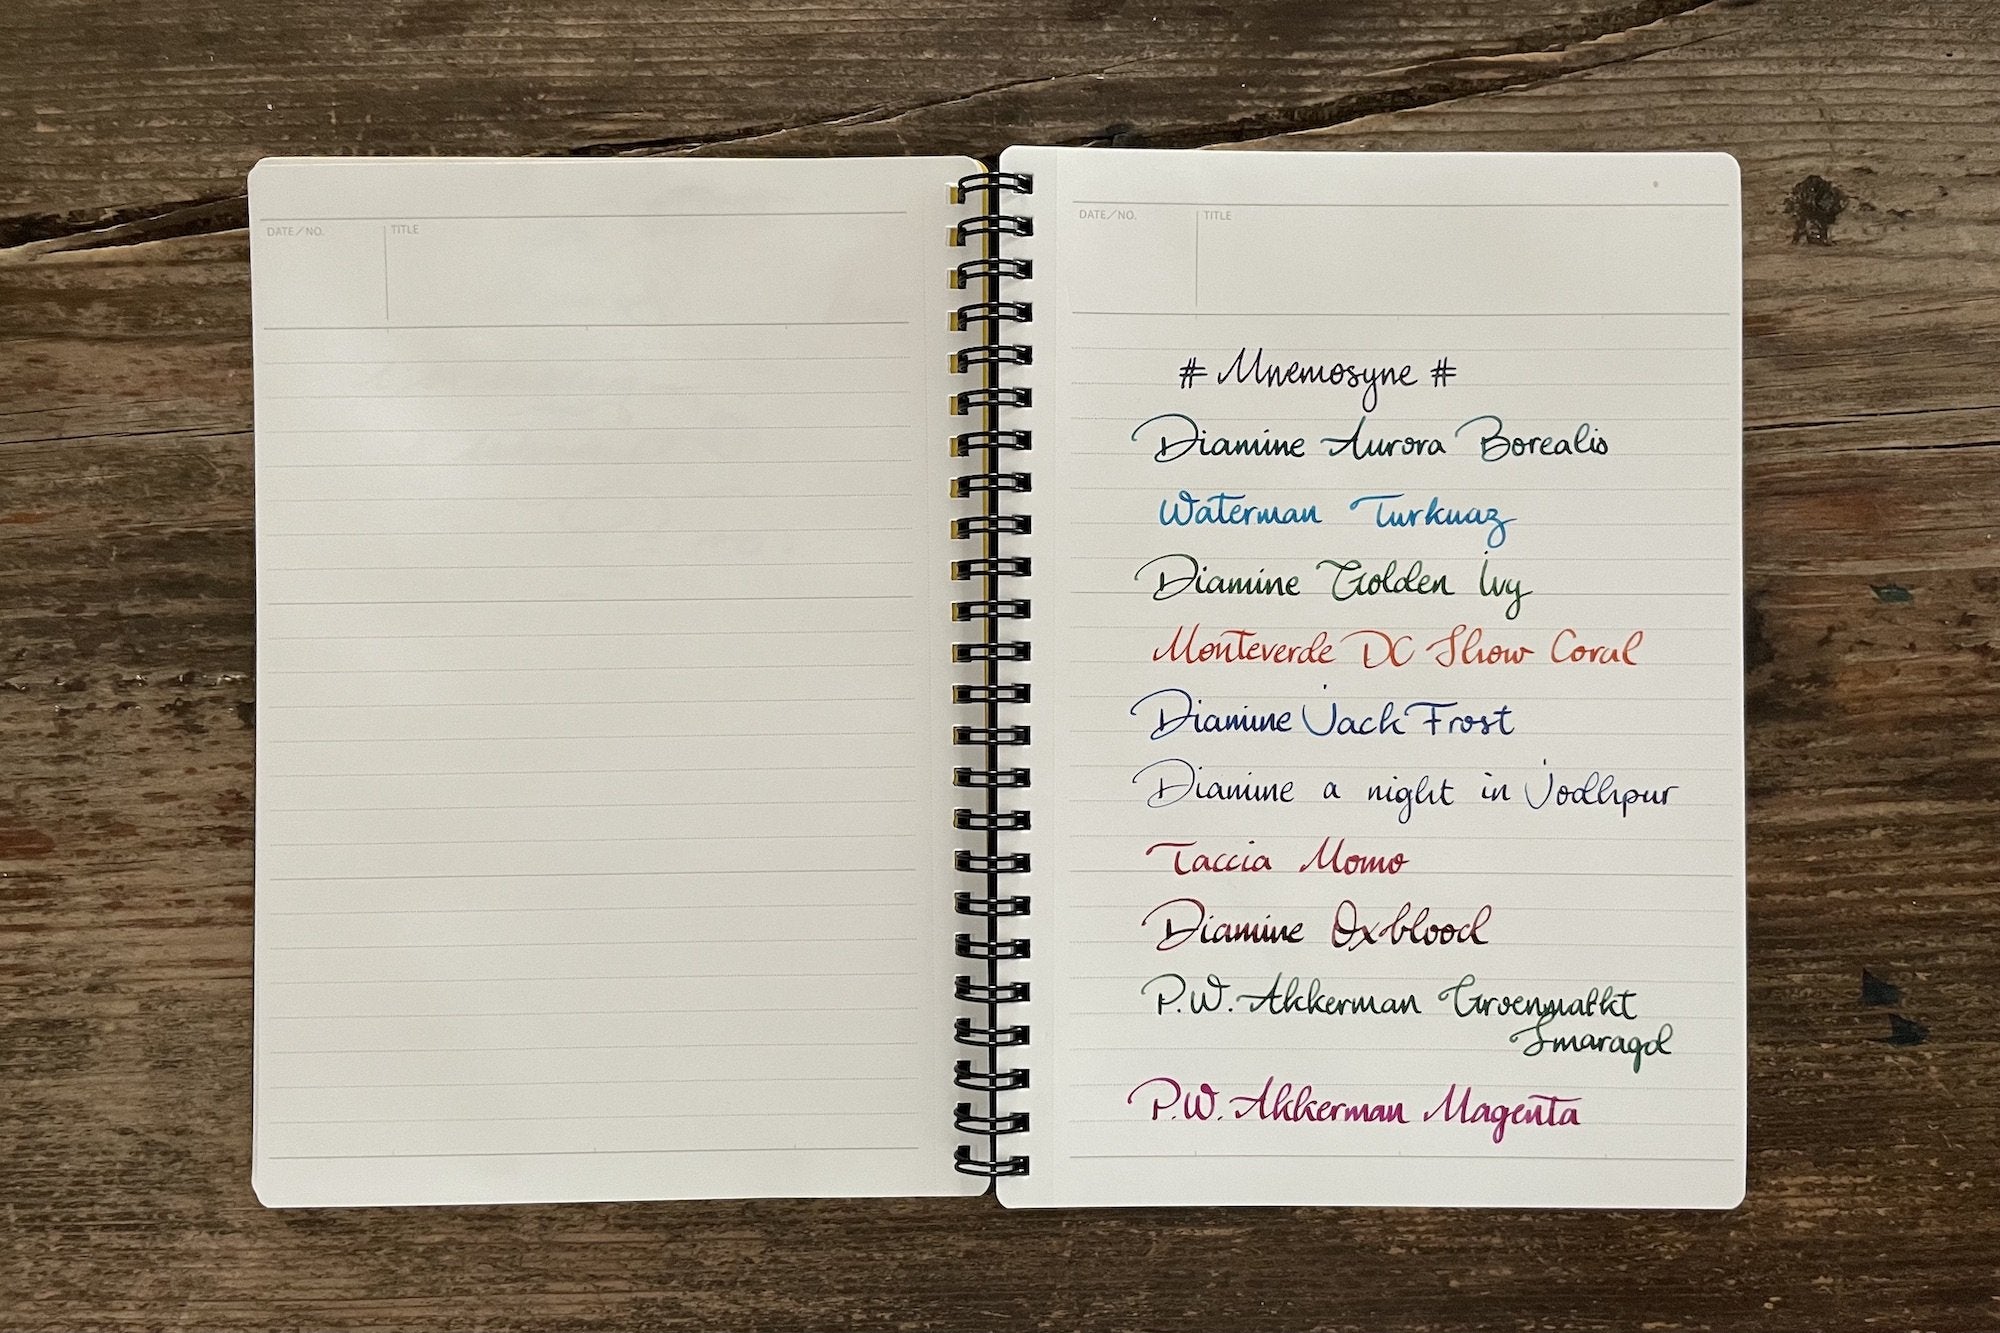 DATE/NO. TITLE
DATE/NO. TITLE
# Mnemosyne #
Diamine Aurora Borealis
Waterman Turkuaz
Diamine Golden Ivy
Monteverde DC Show Coral
Diamine Jack Frost
Diamine a night in Jodhpur
Taccia Momo
Diamine Oxblood
P.W. Akkerman Groenmarkt
Smaragd
P.W. Akkerman Magenta